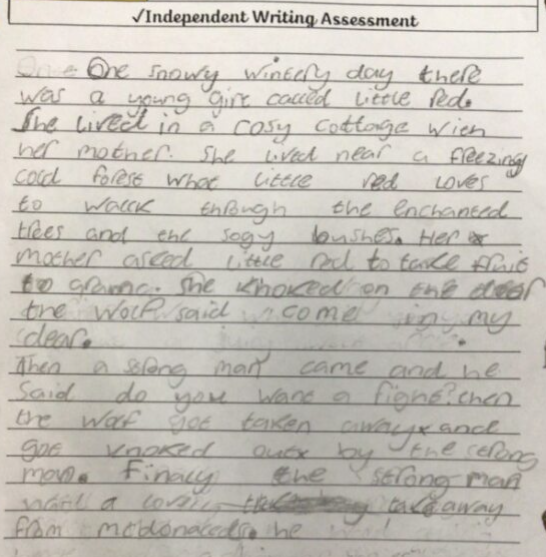 ✓Independent Writing Assessment
One snowy wintery day there
was a young girl called little red.
She lived in a cosy cottage with
her mother. She lived near a freezing
cold forest what little red loves
to walck through the enchanted
trees and the sogy bushes. Her
mother asced little red to take fruit
to granne. She khoked on the door
the wolf said " come in my
dear.
Then a strong man came and he
said do you want a fight? then
the wolf got taken away and
got knoked out by the strong
man. Finacy the strong man
a lovely takeaway
from mcdonaleds. he